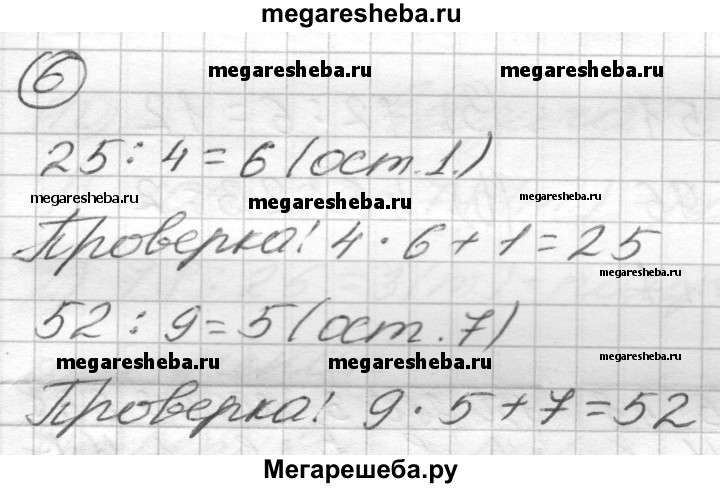 megaresheba.ru
6
megaresheba.ru megaresheba.ru
25 : 4 = 6 (ост. 1.)
megaresheba.ru megaresheba.ru megaresheba.ru
Проверка! 4 · 6 + 1 = 25
megaresheba.ru
52 : 9 = 5 (ост. 7)
megaresheba.ru megaresheba.ru megaresheba.ru
Проверка! 9 · 5 + 7 = 52
Мегарешеба.ру